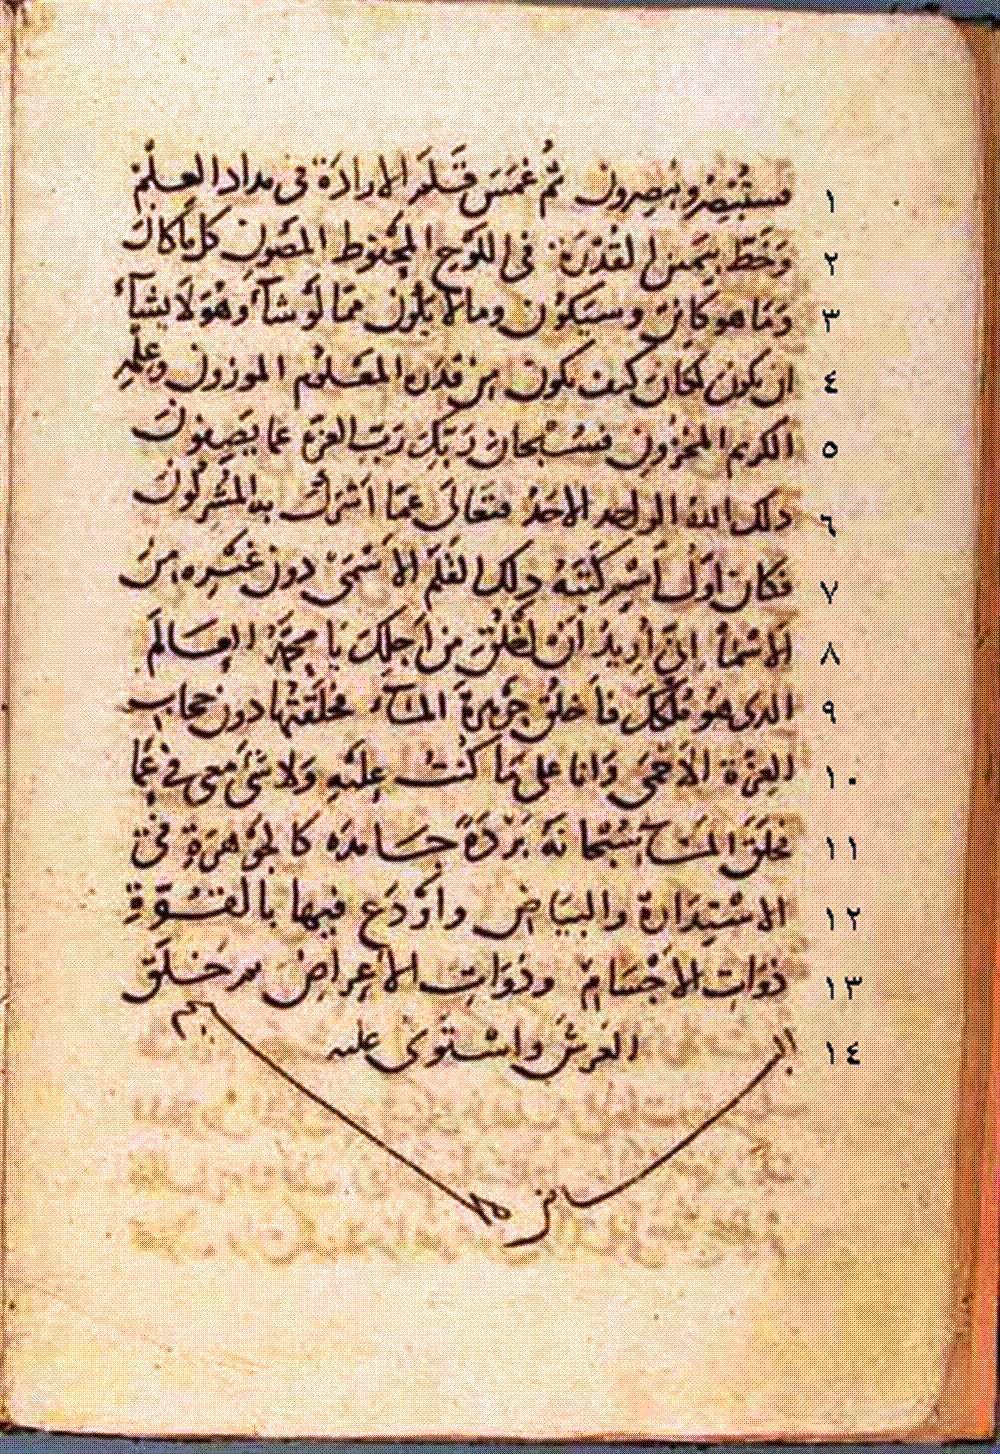 فستبصر ويبصرون ثُمَّ غَمَسَ قَلَمَ الارادَة فى مداد العلم ١
وَخَطَّ بيَمين القُدْرَة فى اللَوْحِ المحفوظ المصَون كل مَا كانَ ٢
وَمَا هو كاين وسَيَكوُن وما لا يكون ممّا لَو شآء وهُوَ لا يشآء ٣
ان يكون لكان كيف يكون من قدره المعَلوُم الموزون وعلمه ٤
الكريم المخزون فسُبْحان رَبّكَ رَبّ العزة عما يَصِفونَ ٥
ذلك الله الواحد الاحَدُ فتَعَالَى عمّا اشرك به المشركُونَ ٦
فكان اوّل اسْم كتَبَهُ ذلك القلَم الاسْمَى دون غيْره منَ ٧
الاسْمآ إنّى أريدُ أنْ اخْلُق من اجلِكَ يَا محمّد العَالَم ٨
الذى هُوَ مُلكك فاَخلُق جَوْهرةَ المآء فخلقتُها دون حجاب ٩
العِزّة الاَحْمَى وَانا على مَا كُنْتُ عليَهِ وَلا شئ معى في عَمَا ١٠
فخلَقَ المآء سُبْحَانَهُ بَرْدَةً جَامِدَه كالجَوْهَرَةِ في ١١
الاسْتِدَارة والبيَاض واوْدَع فيها بالقُوّةِ ١٢
ذوَات الاَجْسَام وذوَات الاَعراض ثم خلَقَ ١٣
العَرشَ واسْتَوى عليه ١٤